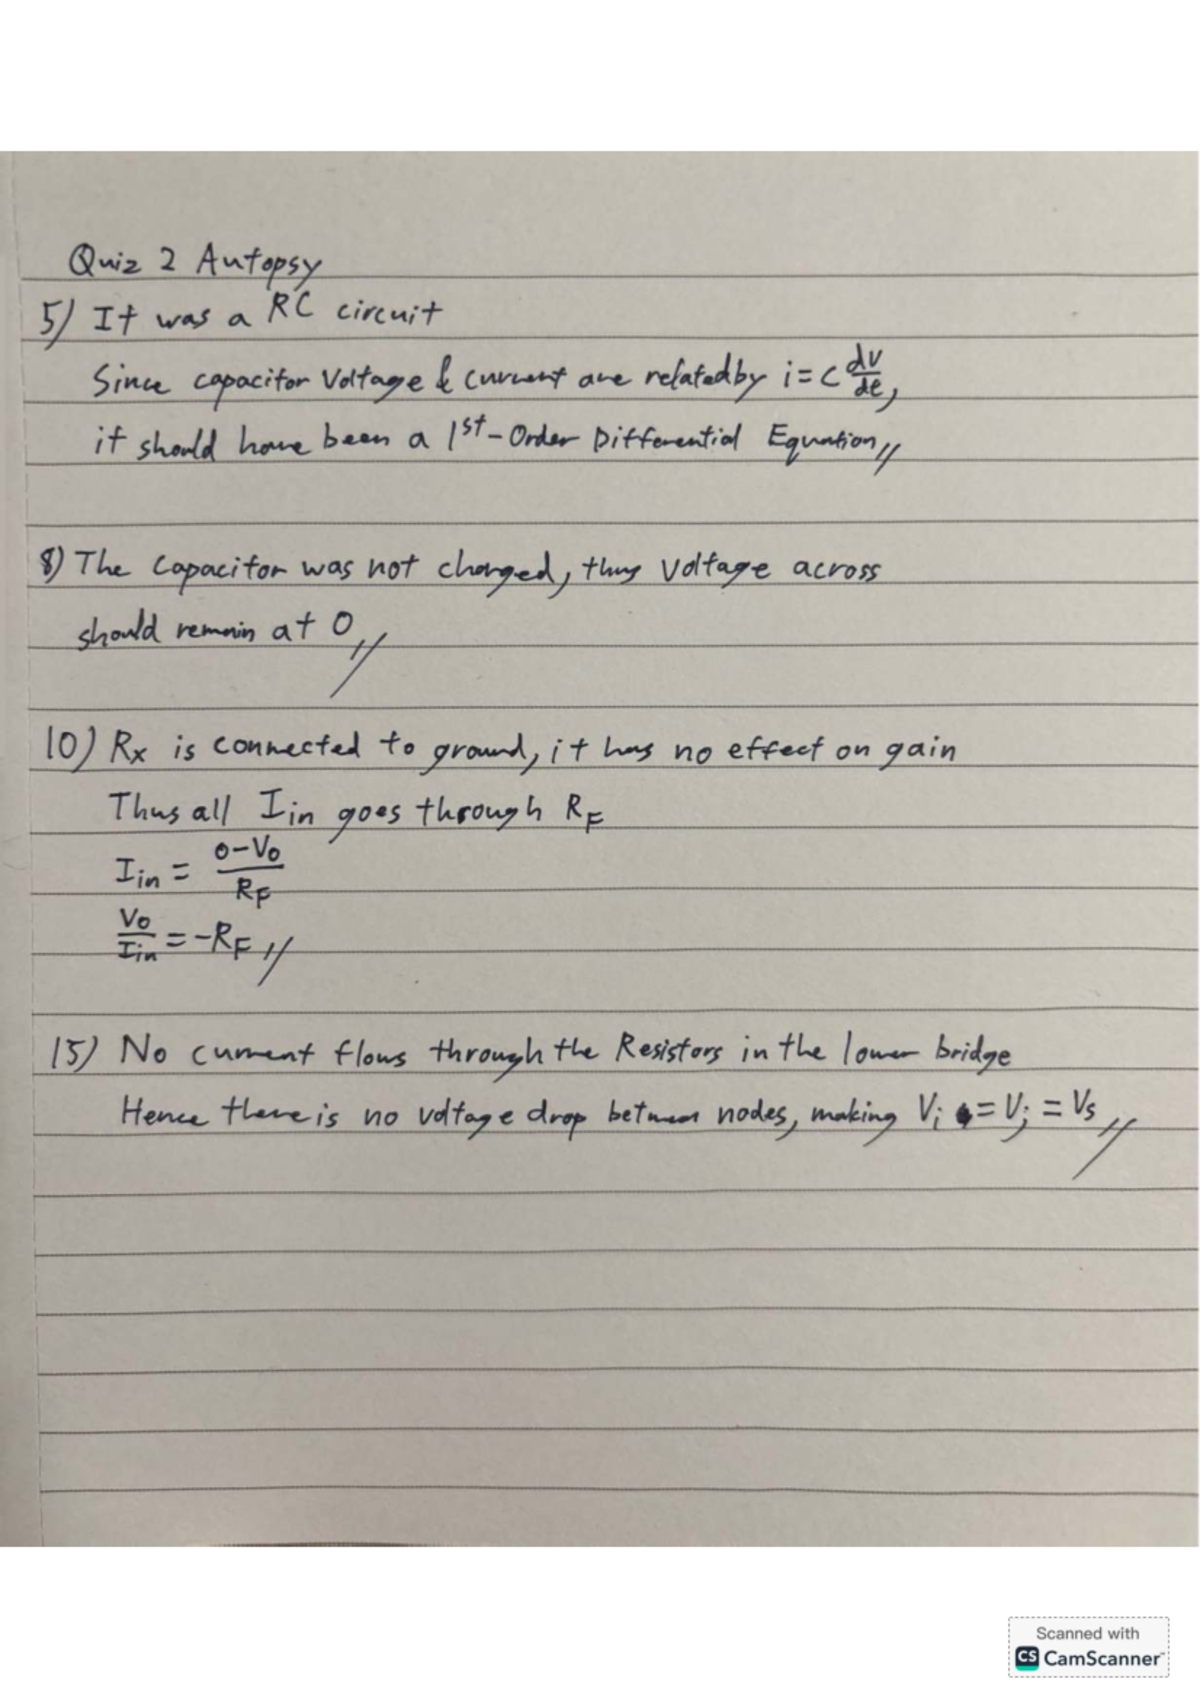 Quiz 2 Autopsy
5) It was a RC circuit
Since capacitor Voltage & current are related by i = C dv/dt,
it should have been a 1st-Order Differential Equation //
8) The capacitor was not charged, thus voltage across
should remain at 0 //
10) Rx is connected to ground, it has no effect on gain
Thus all Iin goes through RF
Iin = (0-Vo)/RF
Vo/Iin = -RF //
15) No current flows through the Resistors in the lower bridge
Hence there is no voltage drop between nodes, making Vi = Vj = Vs //
Scanned with
CS CamScanner